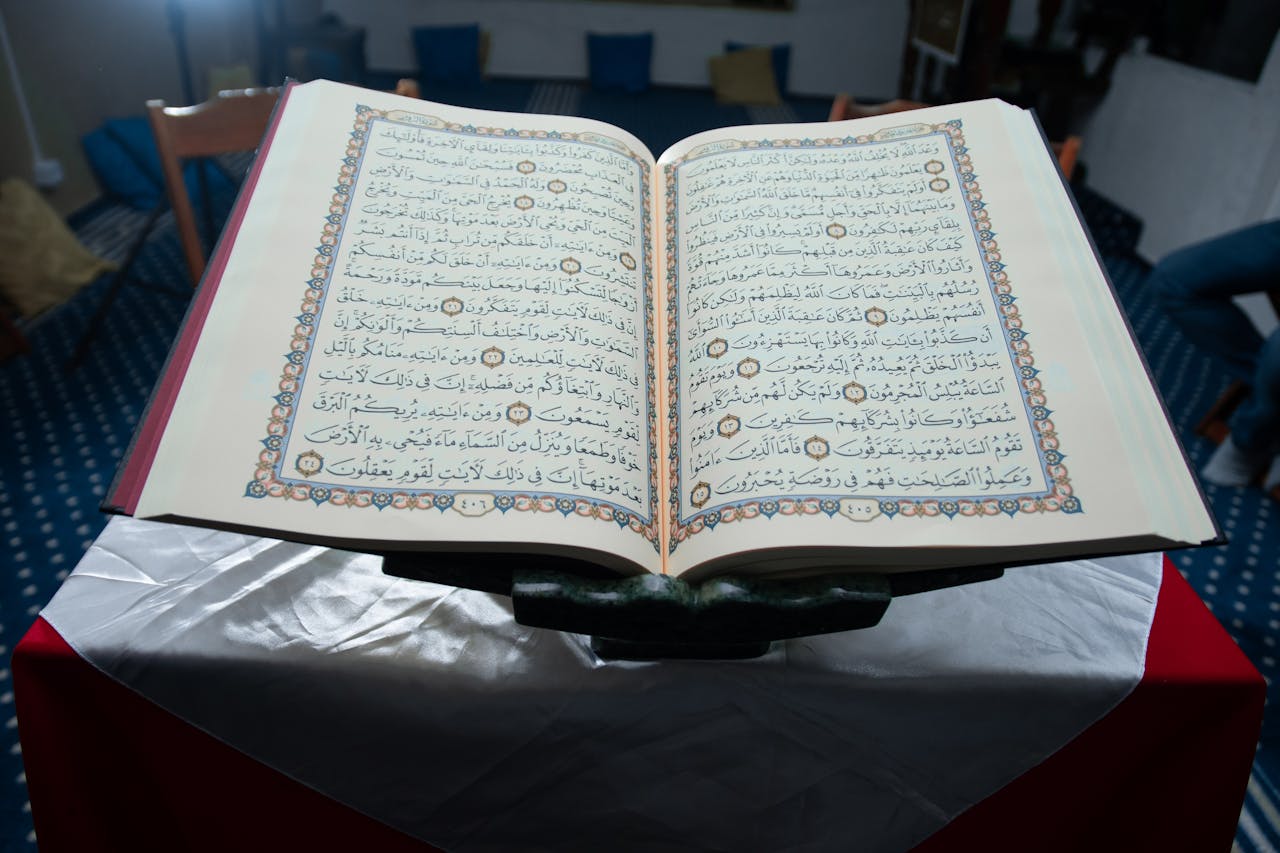 وَعْدَ ٱللَّهِ لَا يُخْلِفُ ٱللَّهُ وَعْدَهُۥ وَلَٰكِنَّ أَكْثَرَ ٱلنَّاسِ لَا يَعْلَمُونَ
٦ يَعْلَمُونَ ظَٰهِرًا مِّنَ ٱلْحَيَوٰةِ ٱلدُّنْيَا وَهُمْ عَنِ ٱلْءَاخِرَةِ هُمْ غَٰفِلُونَ
٧ أَوَلَمْ يَتَفَكَّرُوا۟ فِىٓ أَنفُسِهِم مَّا خَلَقَ ٱللَّهُ ٱلسَّمَٰوَٰتِ وَٱلْأَرْضَ
وَمَا بَيْنَهُمَآ إِلَّا بِٱلْحَقِّ وَأَجَلٍ مُّسَمًّى وَإِنَّ كَثِيرًا مِّنَ ٱلنَّاسِ
بِلِقَآئِ رَبِّهِمْ لَكَٰفِرُونَ ٨ أَوَلَمْ يَسِيرُوا۟ فِى ٱلْأَرْضِ فَيَنظُرُوا۟
كَيْفَ كَانَ عَٰقِبَةُ ٱلَّذِينَ مِن قَبْلِهِمْ كَانُوٓا۟ أَشَدَّ مِنْهُمْ قُوَّةً
وَأَثَارُوا۟ ٱلْأَرْضَ وَعَمَرُوهَآ أَكْثَرَ مِمَّا عَمَرُوهَا وَجَآءَتْهُمْ
رُسُلُهُم بِٱلْبَيِّنَٰتِ فَمَا كَانَ ٱللَّهُ لِيَظْلِمَهُمْ وَلَٰكِن كَانُوٓا۟
أَنفُسَهُمْ يَظْلِمُونَ ٩ ثُمَّ كَانَ عَٰقِبَةَ ٱلَّذِينَ أَسَٰٓـُٔوا۟ ٱلسُّوٓأَىٰٓ
أَن كَذَّبُوا۟ بِـَٔايَٰتِ ٱللَّهِ وَكَانُوا۟ بِهَا يَسْتَهْزِءُونَ ١٠ ٱللَّهُ
يَبْدَؤُا۟ ٱلْخَلْقَ ثُمَّ يُعِيدُهُۥ ثُمَّ إِلَيْهِ تُرْجَعُونَ ١١ وَيَوْمَ تَقُومُ
ٱلسَّاعَةُ يُبْلِسُ ٱلْمُجْرِمُونَ ١٢ وَلَمْ يَكُن لَّهُم مِّن شُرَكَآئِهِمْ
شُفَعَٰٓؤُا۟ وَكَانُوا۟ بِشُرَكَآئِهِمْ كَٰفِرِينَ ١٣ وَيَوْمَ
تَقُومُ ٱلسَّاعَةُ يَوْمَئِذٍ يَتَفَرَّقُونَ ١٤ فَأَمَّا ٱلَّذِينَ ءَامَنُوا۟
وَعَمِلُوا۟ ٱلصَّٰلِحَٰتِ فَهُمْ فِى رَوْضَةٍ يُحْبَرُونَ ١٥
٤٠٥
وَأَمَّا ٱلَّذِينَ كَفَرُوا۟ وَكَذَّبُوا۟ بِـَٔايَٰتِنَا وَلِقَآئِ ٱلْءَاخِرَةِ فَأُو۟لَٰٓئِكَ
فِى ٱلْعَذَابِ مُحْضَرُونَ ١٦ فَسُبْحَٰنَ ٱللَّهِ حِينَ تُمْسُونَ
وَحِينَ تُصْبِحُونَ ١٧ وَلَهُ ٱلْحَمْدُ فِى ٱلسَّمَٰوَٰتِ وَٱلْأَرْضِ
وَعَشِيًّا وَحِينَ تُظْهِرُونَ ١٨ يُخْرِجُ ٱلْحَىَّ مِنَ ٱلْمَيِّتِ وَيُخْرِجُ
ٱلْمَيِّتَ مِنَ ٱلْحَىِّ وَيُحْىِ ٱلْأَرْضَ بَعْدَ مَوْتِهَا وَكَذَٰلِكَ تُخْرَجُونَ
١٩ وَمِنْ ءَايَٰتِهِۦٓ أَنْ خَلَقَكُم مِّن تُرَابٍ ثُمَّ إِذَآ أَنتُم بَشَرٌ
تَنتَشِرُونَ ٢٠ وَمِنْ ءَايَٰتِهِۦٓ أَنْ خَلَقَ لَكُم مِّنْ أَنفُسِكُمْ
أَزْوَٰجًا لِّتَسْكُنُوٓا۟ إِلَيْهَا وَجَعَلَ بَيْنَكُم مَّوَدَّةً وَرَحْمَةً
إِنَّ فِى ذَٰلِكَ لَءَايَٰتٍ لِّقَوْمٍ يَتَفَكَّرُونَ ٢١ وَمِنْ ءَايَٰتِهِۦ خَلْقُ
ٱلسَّمَٰوَٰتِ وَٱلْأَرْضِ وَٱخْتِلَٰفُ أَلْسِنَتِكُمْ وَأَلْوَٰنِكُمْ إِنَّ
فِى ذَٰلِكَ لَءَايَٰتٍ لِّلْعَٰلِمِينَ ٢٢ وَمِنْ ءَايَٰتِهِۦ مَنَامُكُم بِٱلَّيْلِ
وَٱلنَّهَارِ وَٱبْتِغَآؤُكُم مِّن فَضْلِهِۦٓ إِنَّ فِى ذَٰلِكَ لَءَايَٰتٍ
لِّقَوْمٍ يَسْمَعُونَ ٢٣ وَمِنْ ءَايَٰتِهِۦ يُرِيكُمُ ٱلْبَرْقَ
خَوْفًا وَطَمَعًا وَيُنَزِّلُ مِنَ ٱلسَّمَآءِ مَآءً فَيُحْىِۦ بِهِ ٱلْأَرْضَ
بَعْدَ مَوْتِهَآ إِنَّ فِى ذَٰلِكَ لَءَايَٰتٍ لِّقَوْمٍ يَعْقِلُونَ ٢٤
٤٠٦